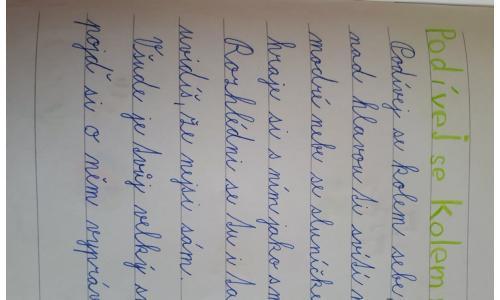 Podívej se kolem
Podívej se kolem sebe,
nad hlavou ti svítí
modré nebe se sluníčk
hraje si s ním jako
Rozhlédni se tu i
uvidíš, že nejsi sám.
Všude je tvůj velký
pojď si o něm vypráv